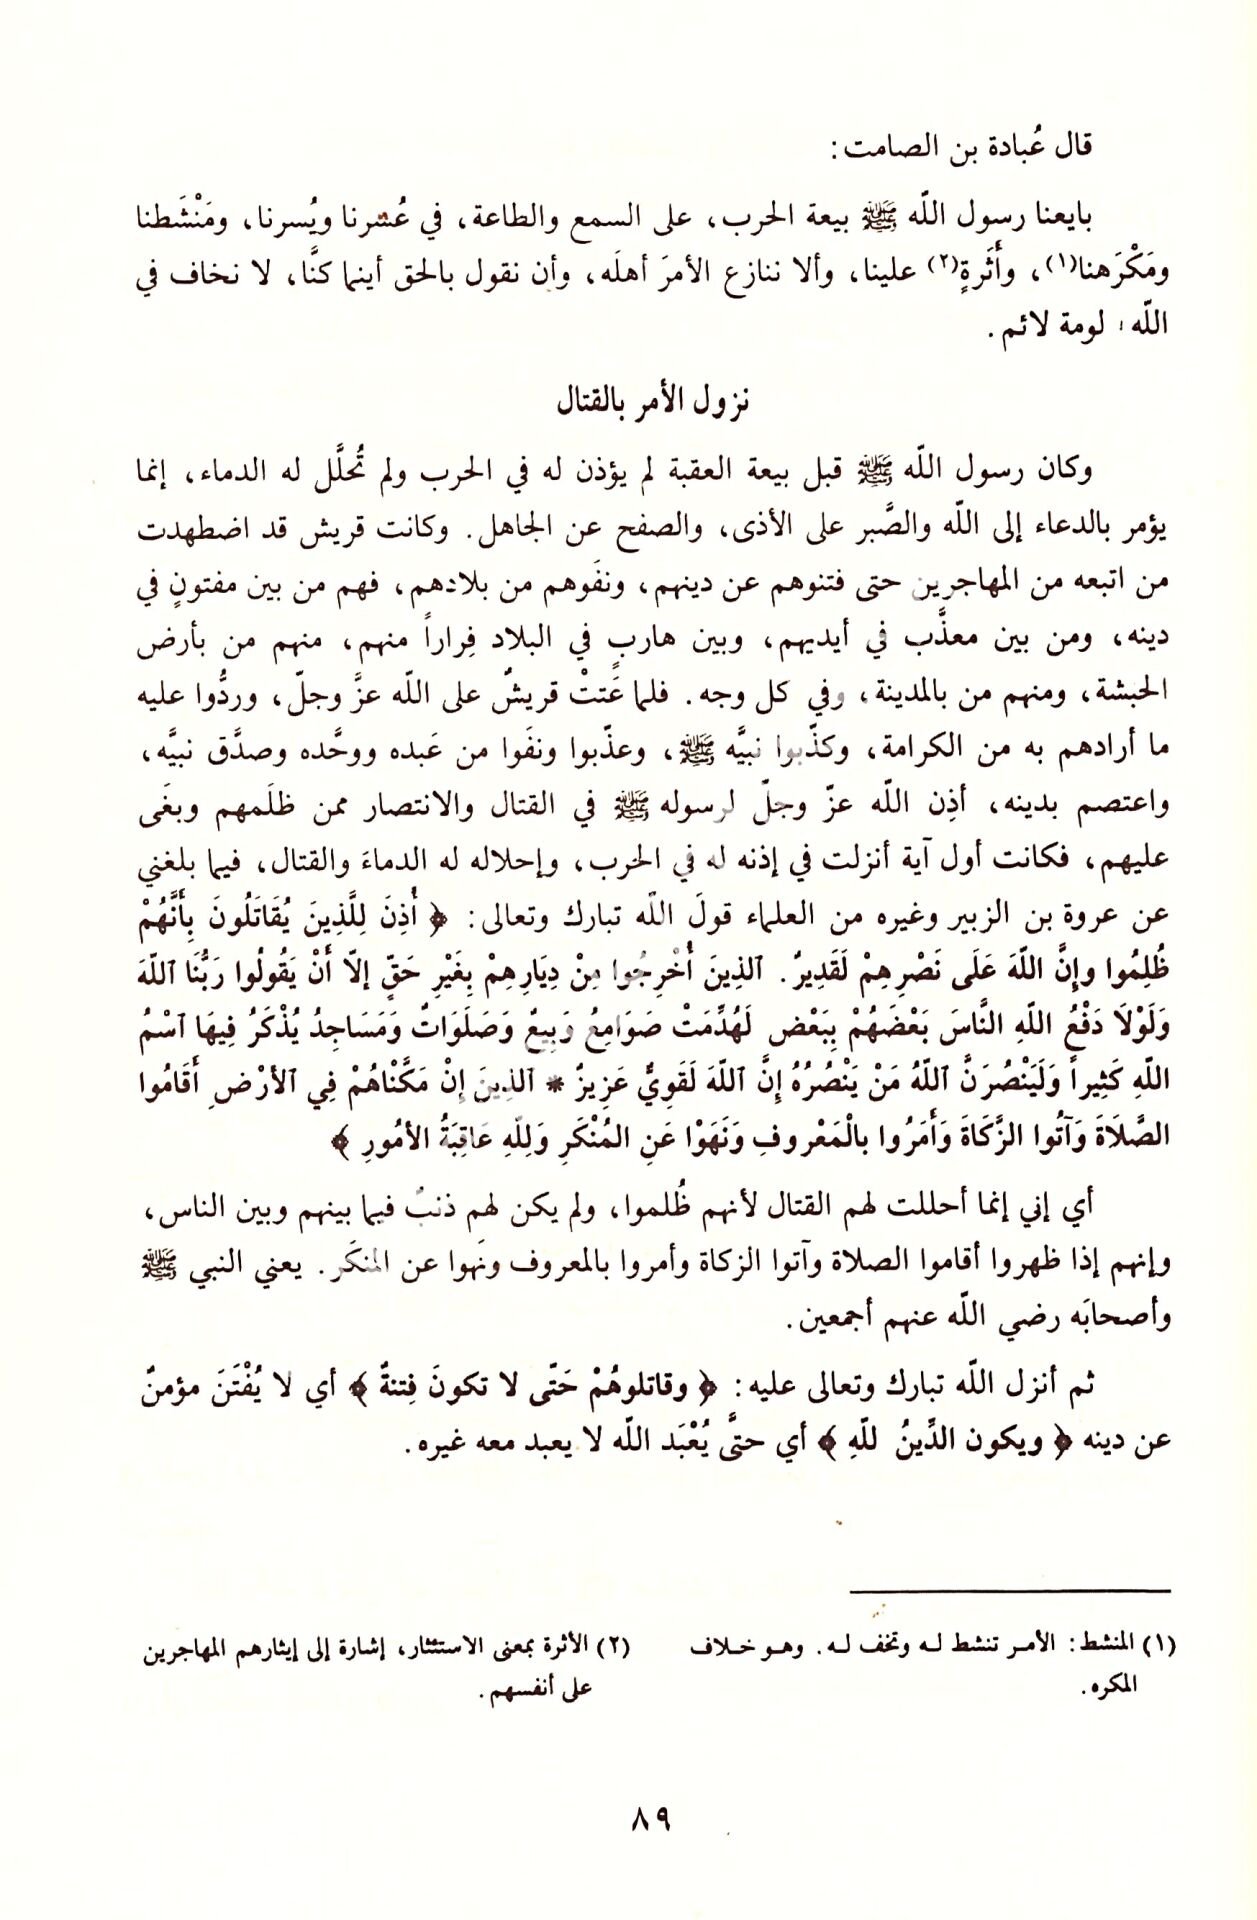 قال عُبادة بن الصامت:
بايعنا رسول اللّه ﷺ بيعة الحرب، على السمع والطاعة، في عُسْرنا ويُسرنا، ومَنْشَطنا
ومَكْرَهنا(١)، وأَثَرةٍ(٢) علينا، وألا ننازع الأمرَ أهلَه، وأن نقول بالحق أينما كنَّا، لا نخاف في
اللّه لومة لائم.
نزول الأمر بالقتال
وكان رسول اللّه ﷺ قبل بيعة العقبة لم يؤذن له في الحرب ولم تُحلَّل له الدماء، إنما
يؤمر بالدعاء إلى اللّه والصَّبر على الأذى، والصفح عن الجاهل. وكانت قريش قد اضطهدت
من اتبعه من المهاجرين حتى فتنوهم عن دينهم، ونفَوهم من بلادهم، فهم من بين مفتونٍ في
دينه، ومن بين معذَّب في أيديهم، وبين هاربٍ في البلاد فِراراً منهم، منهم من بأرض
الحبشة، ومنهم من بالمدينة، وفي كل وجه. فلما عَتتْ قريشٌ على اللّه عزَّ وجلّ، وردُّوا عليه
ما أرادهم به من الكرامة، وكذّبوا نبيَّه ﷺ، وعذّبوا ونفَوا من عَبده ووحَّده وصدَّق نبيَّه،
واعتصم بدينه، أذِن اللّه عزّ وجلّ لرسوله ﷺ في القتال والانتصار ممن ظلَمهم وبغَى
عليهم، فكانت أول آية أنزلت في إذنه له في الحرب، وإحلاله له الدماءَ والقتال، فيما بلغني
عن عروة بن الزبير وغيره من العلماء قولَ اللّه تبارك وتعالى: ﴿ أُذِنَ لِلَّذِينَ يُقَاتَلُونَ بِأَنَّهُمْ
ظُلِمُوا وإِنَّ اللّهَ عَلَى نَصْرِهِمْ لَقَدِيرٌ. ٱلذِينَ أُخْرِجُوا مِنْ دِيَارِهِمْ بِغَيْرِ حَقّ إلاّ أَنْ يَقُولُوا رَبُّنَا ٱللّهَ
وَلَوْلاَ دَفْعُ اللّهِ النَّاسَ بَعْضَهُمْ بِبَعْضٍ لَهُدِّمَتْ صَوَامِعُ وَبِيَعٌ وَصَلَوَاتٌ وَمَسَاجِدُ يُذْكَرُ فِيهَا ٱسْمُ
اللّهِ كَثِيراً وَلَيَنْصُرَنَّ ٱللّهُ مَنْ يَنْصُرُهُ إِنَّ ٱللّهَ لَقَوِيٌّ عَزِيزٌ * ٱلذِينَ إِنْ مَكَّنَاهُمْ فِي ٱلأرْضِ أَقَامُوا
الصَّلاَةَ وَآتُوا الزَّكَاةَ وَأَمَرُوا بالْمَعْرُوفِ وَنَهَوْا عَنِ المُنْكَرِ وَلِلّهِ عَاقِبَةُ الأمُورِ ﴾
أي إني إنما أحللت لهم القتال لأنهم ظُلموا، ولم يكن لهم ذنبٌ فيما بينهم وبين الناس،
وإنهم إذا ظهروا أقاموا الصلاة وآتوا الزكاة وأمروا بالمعروف ونَهوا عن المنكَر. يعني النبي ﷺ
وأصحابَه رضي اللّه عنهم أجمعين.
ثم أنزل اللّه تبارك وتعالى عليه: ﴿ وقاتلوهُمْ حَتّى لا تكونَ فِتنةٌ ﴾ أي لا يُفْتَنَ مؤمنٌ
عن دينه ﴿ ويكون الدِّينُ للّهِ ﴾ أي حتَّى يُعْبَد اللّه لا يعبد معه غيره.
(١) المنشط: الأمر تنشط له وتخف له. وهو خلاف
المكره.
(٢) الأثرة بمعنى الاستئثار، إشارة إلى إيثارهم المهاجرين
على أنفسهم.
٨٩